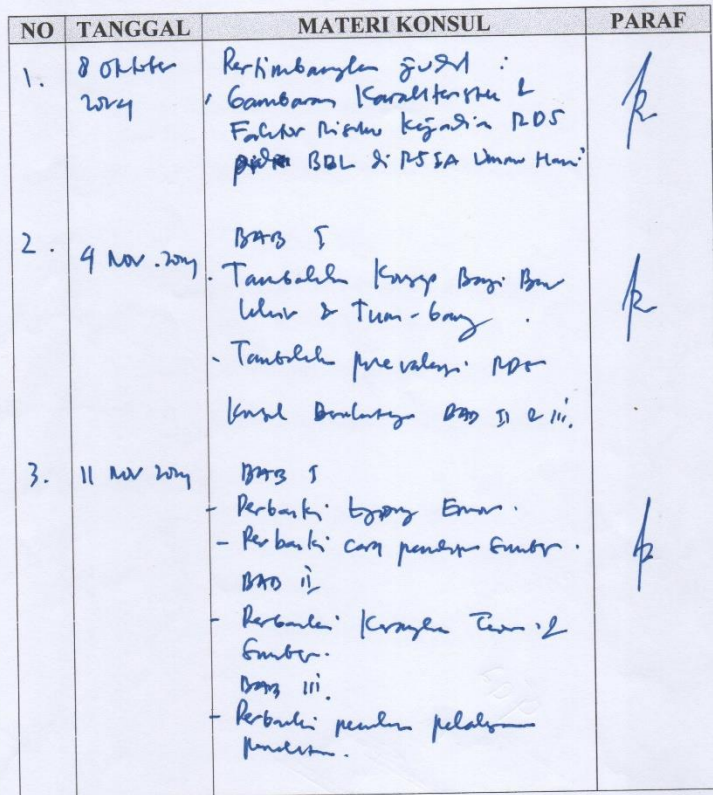 NO TANGGAL MATERI KONSUL PARAF
1. 8 Oktober 2024 Pertimbangkan judul :
Gambaran Karakteristik &
Faktor Risiko Kejadian RDS
pada BBL di RSIA Umar Hani
2. 4 Nov. 2024 BAB I
- Tambahkan Konsep Bayi Baru
lahir & Tum-bang.
- Tambahkan prevalensi RDS
Konsul Berikutnya BAB II & III.
3. 11 Nov 2024 BAB I
- Perbaiki typing Error.
- Perbaiki cara penulisan Sumber.
BAB II
- Perbaiki Kerangka Teori &
Sumber.
BAB III.
- Perbaiki
penelitian.